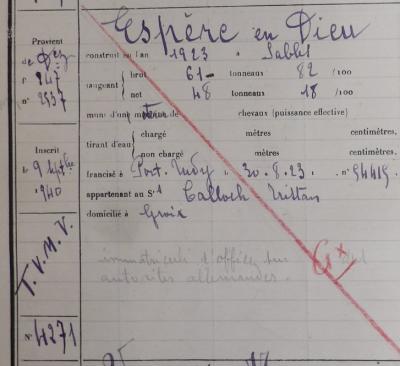 Espère en Dieu
Provient
de Dz
fº 247
nº 2537
construit en l'an 1923 à Sables
jaugeant brut 61 tonneaux 82 /100
net 48 tonneaux 18 /100
muni d'un moteur de chevaux (puissance effective)
tirant d'eau chargé mètres centimètres.
non chargé mètres centimètres.
francisé à Port-Tudy 30.8.23. nº 94419.
appartenant au Sr Calloch Tristan
domicilié à Groix
Inscrit
le 9 7bre
1940
T.V.M.V.
immatriculé d'office par
autorités allemandes.
Nº 4271